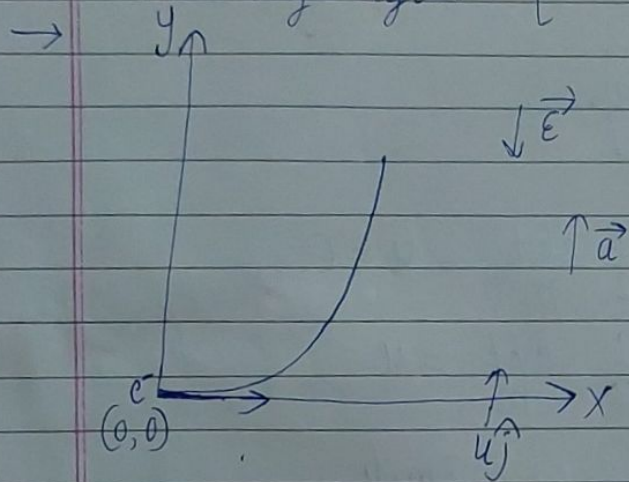 y
→ε
→a
e⁻
(0,0)
x
uĵ